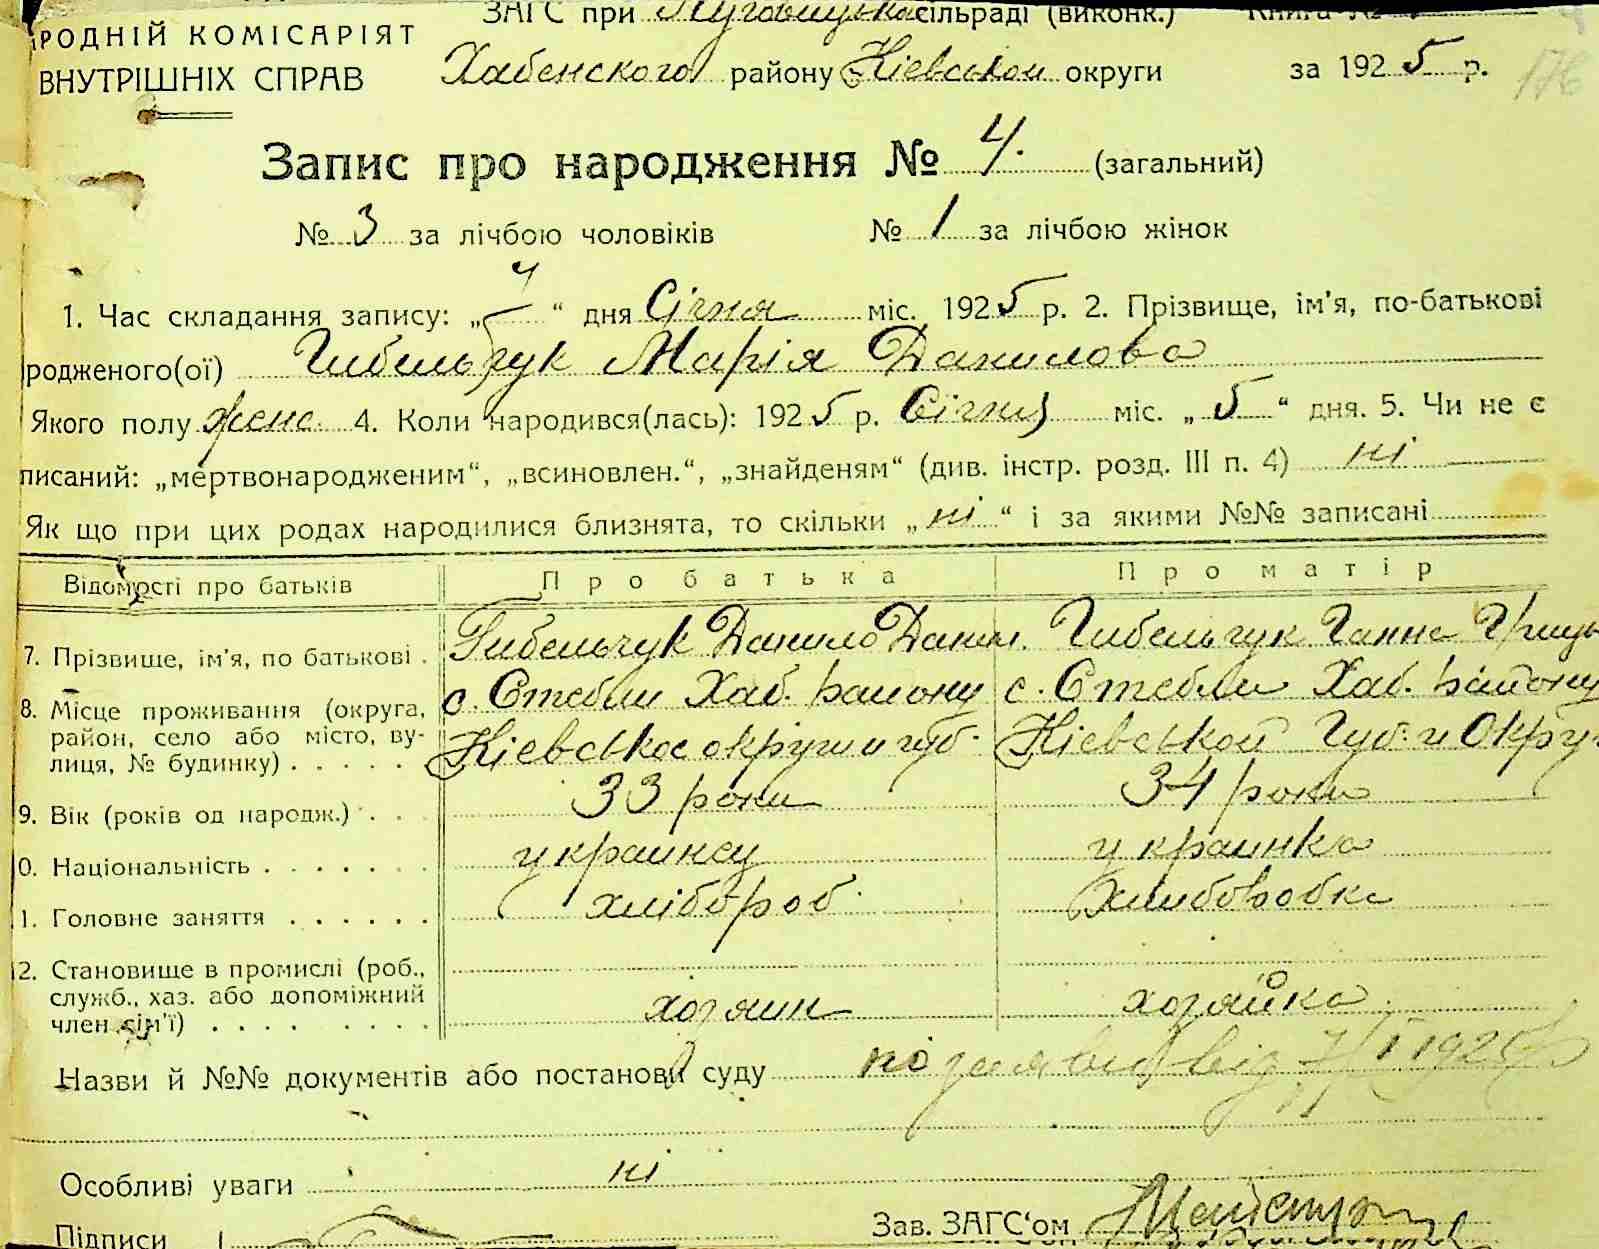 ЗАГС при Луговицькій сільраді (виконк.) Книга №
РОДНІЙ КОМІСАРІЯТ
ВНУТРІШНІХ СПРАВ
Хабенского району Кіевськой округи за 1925 р.
176
Запис про народження № 4. (загальний)
№ 3 за лічбою чоловіків № 1 за лічбою жінок
1. Час складання запису: „ “ дня Січня міс. 1925 р. 2. Прізвище, ім'я, по-батькові
родженого(ої) Гибельчук Марія Данилова
Якого полу женс. 4. Коли народився(лась): 1925 р. Січня міс. „5“ дня. 5. Чи не є
писаний: „мертвонародженим“, „всиновлен.“, „знайденям“ (див. інстр. розд. III п. 4) ні
Як що при цих родах народилися близнята, то скільки „ні“ і за якими №№ записані
Відомості про батьків Про батька Про матір
7. Прізвище, ім'я, по батькові . Гибельчук Данило Данил. Гибельчук Ганна Гриць
8. Місце проживання (округа, район, село або місто, вулиця, № будинку) . . . . . с. Стебли Хаб. району с. Стебли Хаб. району
Кіевськое округи и губ. Кіевськой Губ. и Окру.
9. Вік (років од народж.) . . . 33 роки 34 роки
0. Національність . . . . . . . украинец украинка
1. Головне заняття . . . . . . хлібороб хлиборобка
2. Становище в промислі (роб., служб., хаз. або допоміжний член сім'ї) . . . . . . . . хозяин хозяйка
Назви й №№ документів або постанови суду по заявi від 7/I 1925 р
Особливі уваги ні
Підписи Зав. ЗАГС'ом